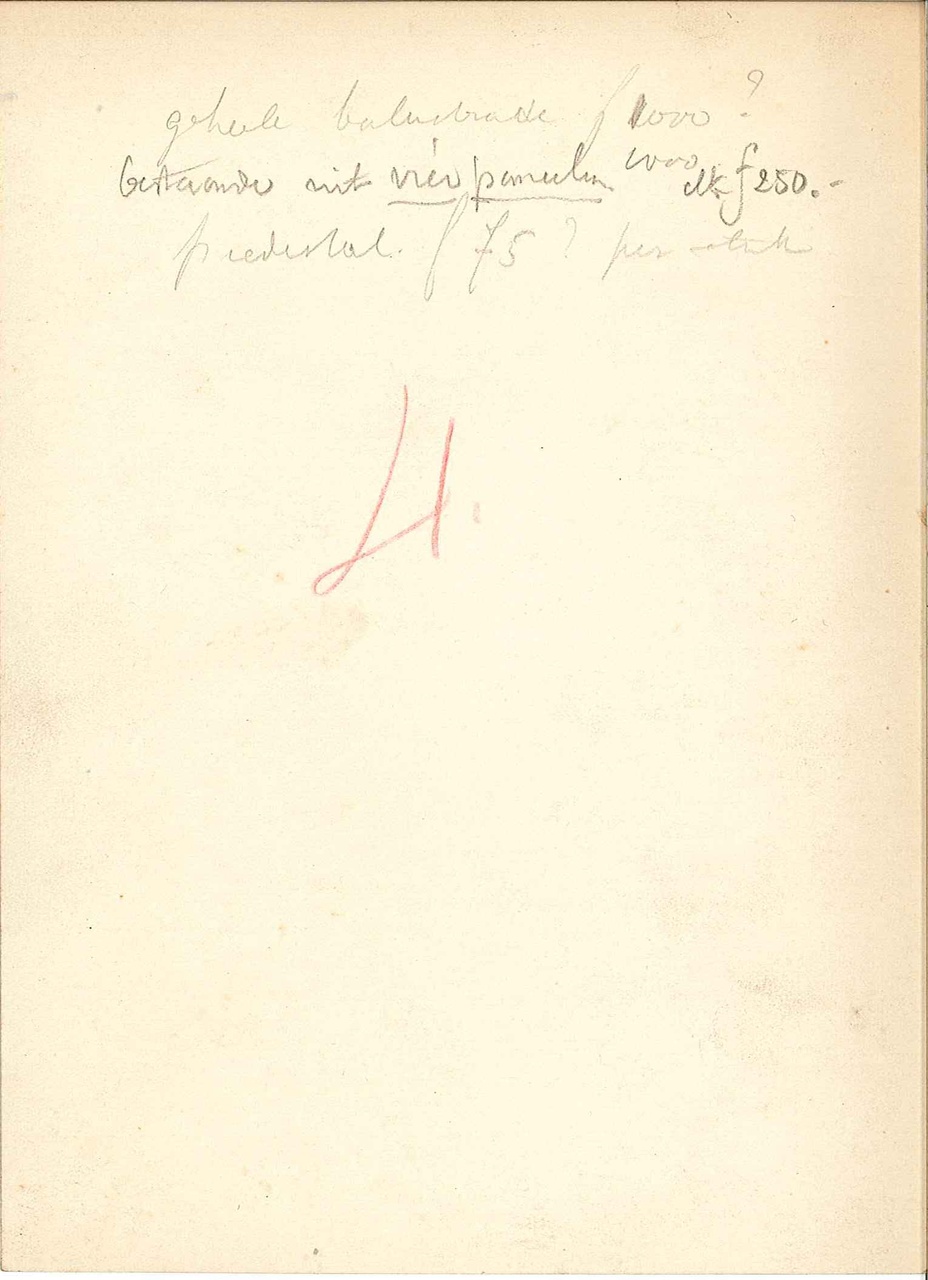 geheele balustrade f 1000 ?
bestaande uit vier paneelen 1000 elk f 250.-
piedestal. f 75 ? per stuk
4.